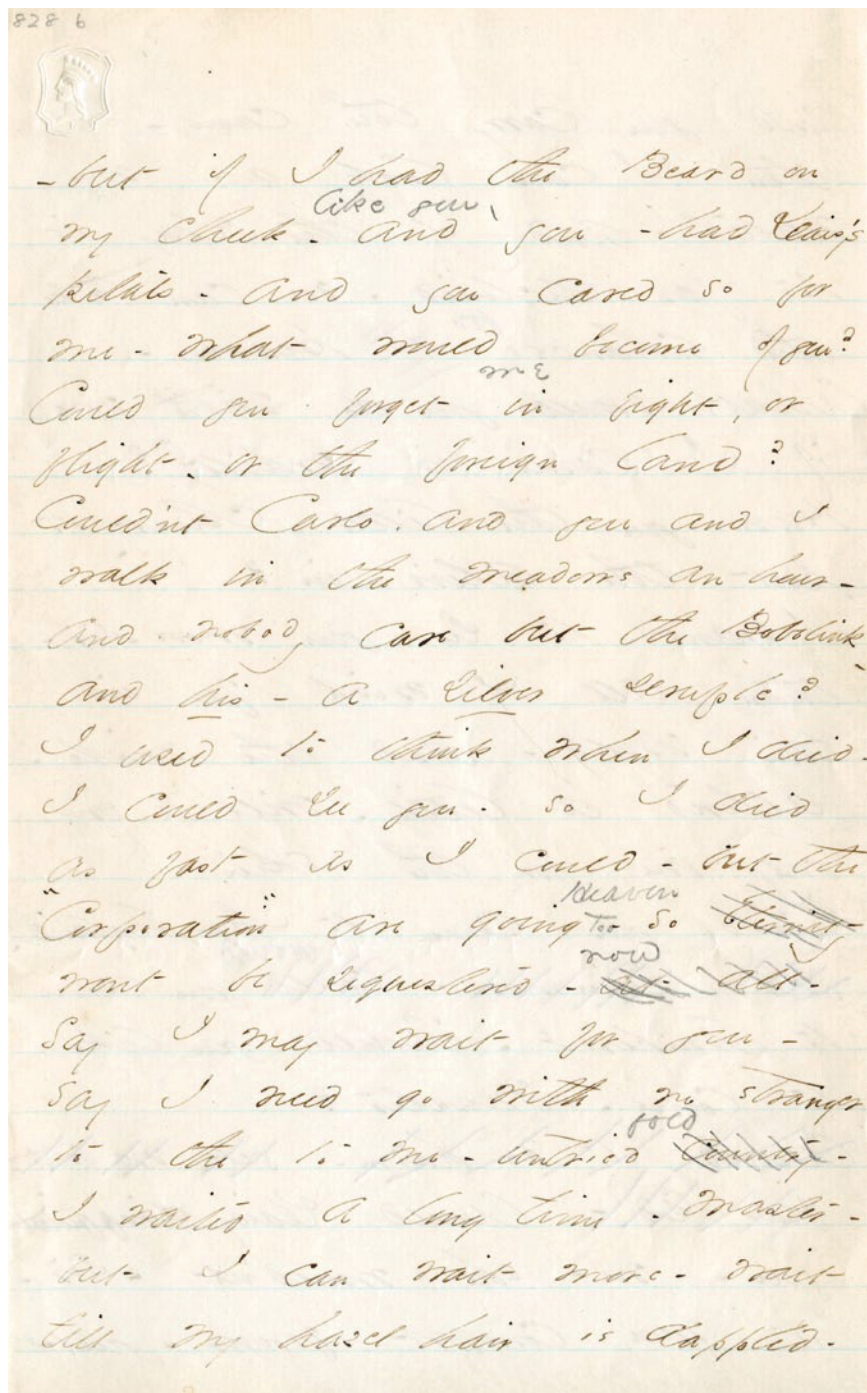 828 6
- but if I had the Beard on
like you,
my cheek - and you - had Daisy's
Petals - and you cared so for
me - what would become of you?
me
Could you forget in fight, or
flight - or the foreign land?
Could'nt Carlo - and you and I
walk in the meadows an hour -
and nobody care but the Bobolink -
and his - a silver scruple?
I used to think when I died -
I could see you - so I died
as fast as I could - but the
Heaven
"Corporation" are going too so Eternity
now
wont be sequestered - at all -
Say I may wait for you -
say I need go with no stranger
fold
to the to me - untried country -
I waited a long time - Master -
but I can wait more - wait
till my hazel hair is dappled -